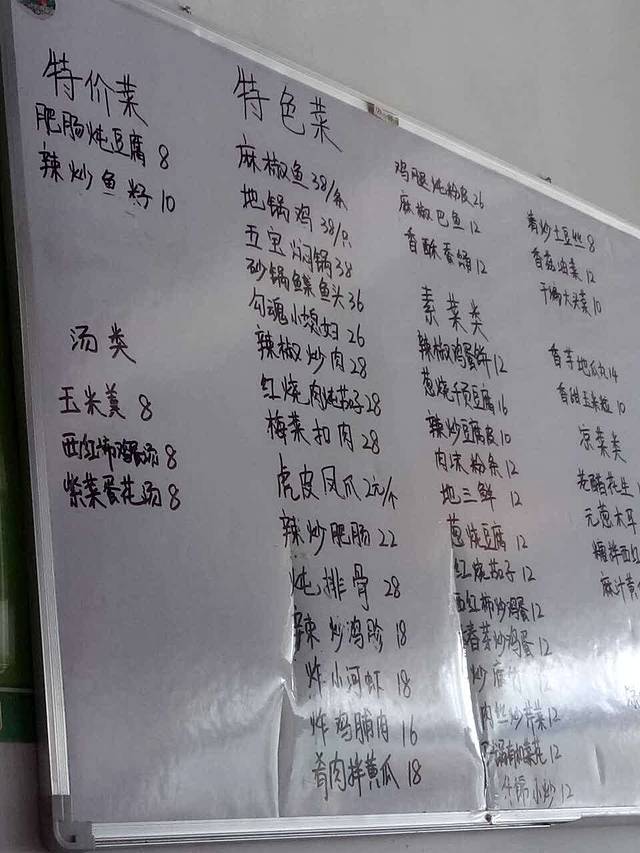 特价菜
肥肠炖豆腐 8
辣炒鱼籽 10
汤类
玉米羹 8
西红柿鸡蛋汤 8
紫菜蛋花汤 8
特色菜
麻椒鱼 38/条
地锅鸡 38/只
五里焖锅 38
砂锅鲽鱼头 36
勾魂小媳妇 26
辣椒炒肉 28
红烧肉炖茄子 28
梅菜扣肉 28
虎皮凤爪 2元/个
辣炒肥肠 22
炖排骨 28
辣炒鸡胗 18
炸小河虾 18
炸鸡脯肉 16
肴肉拌黄瓜 18
鸡腿炖粉皮 26
麻椒巴鱼 12
香酥香脯 12
素菜类
辣椒鸡蛋饼 12
葱烧千页豆腐 16
辣炒豆腐皮 10
肉沫粉条 12
地三鲜 12
葱烧豆腐 12
红烧茄子 12
西红柿炒鸡蛋 12
香菜炒鸡蛋 12
炒腐竹 12
肉丝炒芹菜 12
锅有机菜花 12
小炒 12
炒土豆丝 8
香菇油菜 12
干煸大头菜 10
香芋地瓜丸 14
香甜玉米粒 10
凉菜类
老醋花生
元葱木耳
糖拌西红
麻汁黄